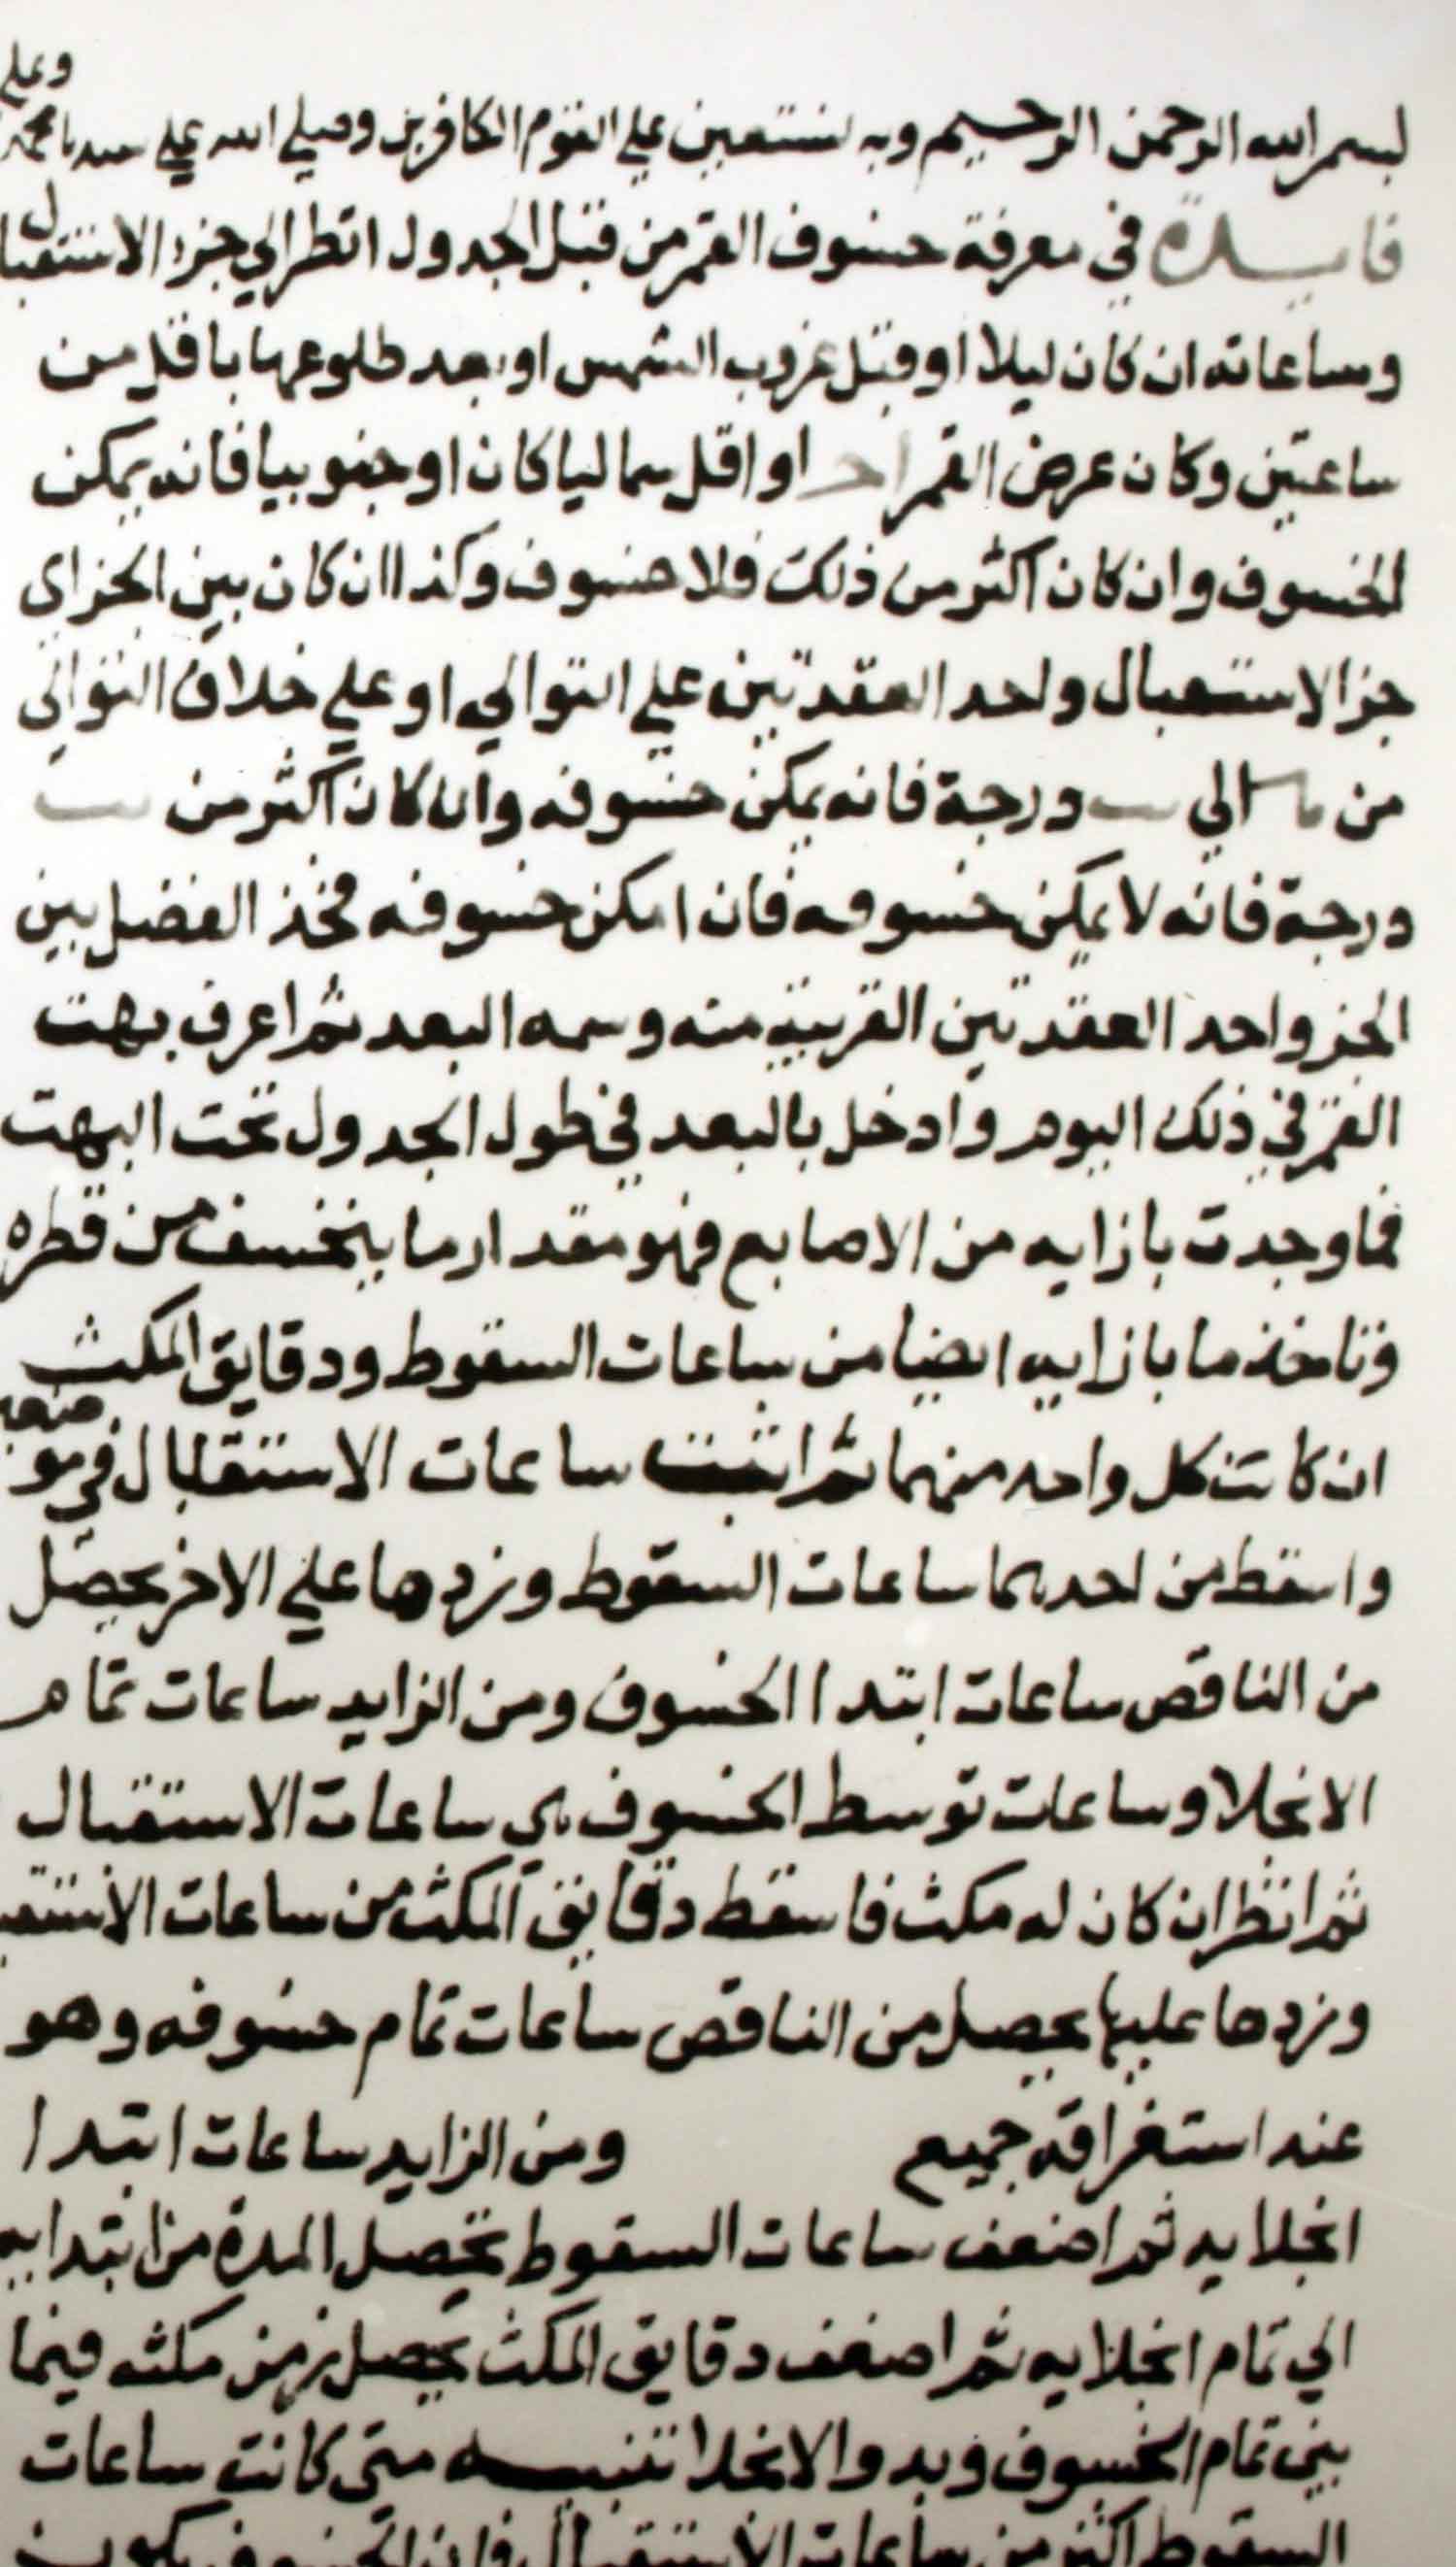 وعلي
بسم الله الرحمن الرحيم وبه نستعين علي القوم الكافرين وصلي الله علي سيدنا محمد
فايدة في معرفة خسوف القمر من قبل الجدول انظر الي جزء الاستقبال
وساعاته ان كان ليلا او قبل غروب الشمس او بعد طلوعها باقل من
ساعتين وكان عرض القمر او اقل سماليا كان او جنوبيا فانه يمكن
الخسوف وان كان اكثر من ذلك فلا خسوف وكذا ان كان بين الجز اي
جز الاستقبال واحد العقدتين علي التوالي او علي خلاف التوالي
من الي درجة فانه يمكن خسوفه وان كان اكثر من
درجة فانه لا يمكن خسوفه فان امكن خسوفه فخذ الفضل بين
الجز واحد العقدتين القريبة منه وسمه البعد ثم اعرف بهت
القمر في ذلك اليوم وادخل بالبعد في طول الجدول تحت البهت
فما وجدت بازايه من الاصابع فهو مقدار ما ينخسف من قطره
وتاخذ ما بازايه ايضا من ساعات السقوط ودقايق المكث
ان كانت كل واحد منهما ثم اثبت ساعات الاستقبال في موضعين
واسقط من احدهما ساعات السقوط وزدها علي الاخر يحصل
من الناقص ساعات ابتدا الخسوف ومن الزايد ساعات تمام
الانجلا وساعات توسط الخسوف هي ساعات الاستقبال
ثم انظر ان كان له مكث فاسقط دقايق المكث من ساعات الاستقبال
وزدها عليها يحصل من الناقص ساعات تمام خسوفه وهو
عند استغراقه جميع ومن الزايد ساعات ابتدا
انجلايه ثم اضعف ساعات السقوط تحصل المدة من ابتدايه
الي تمام انجلايه ثم اضعف دقايق المكث يحصل زمن مكثه فيما
بين تمام الخسوف وبدو الانجلا تنبيه متي كانت ساعات
السقوط اكثر من ساعات الاستقبال فان الخسوف يكون